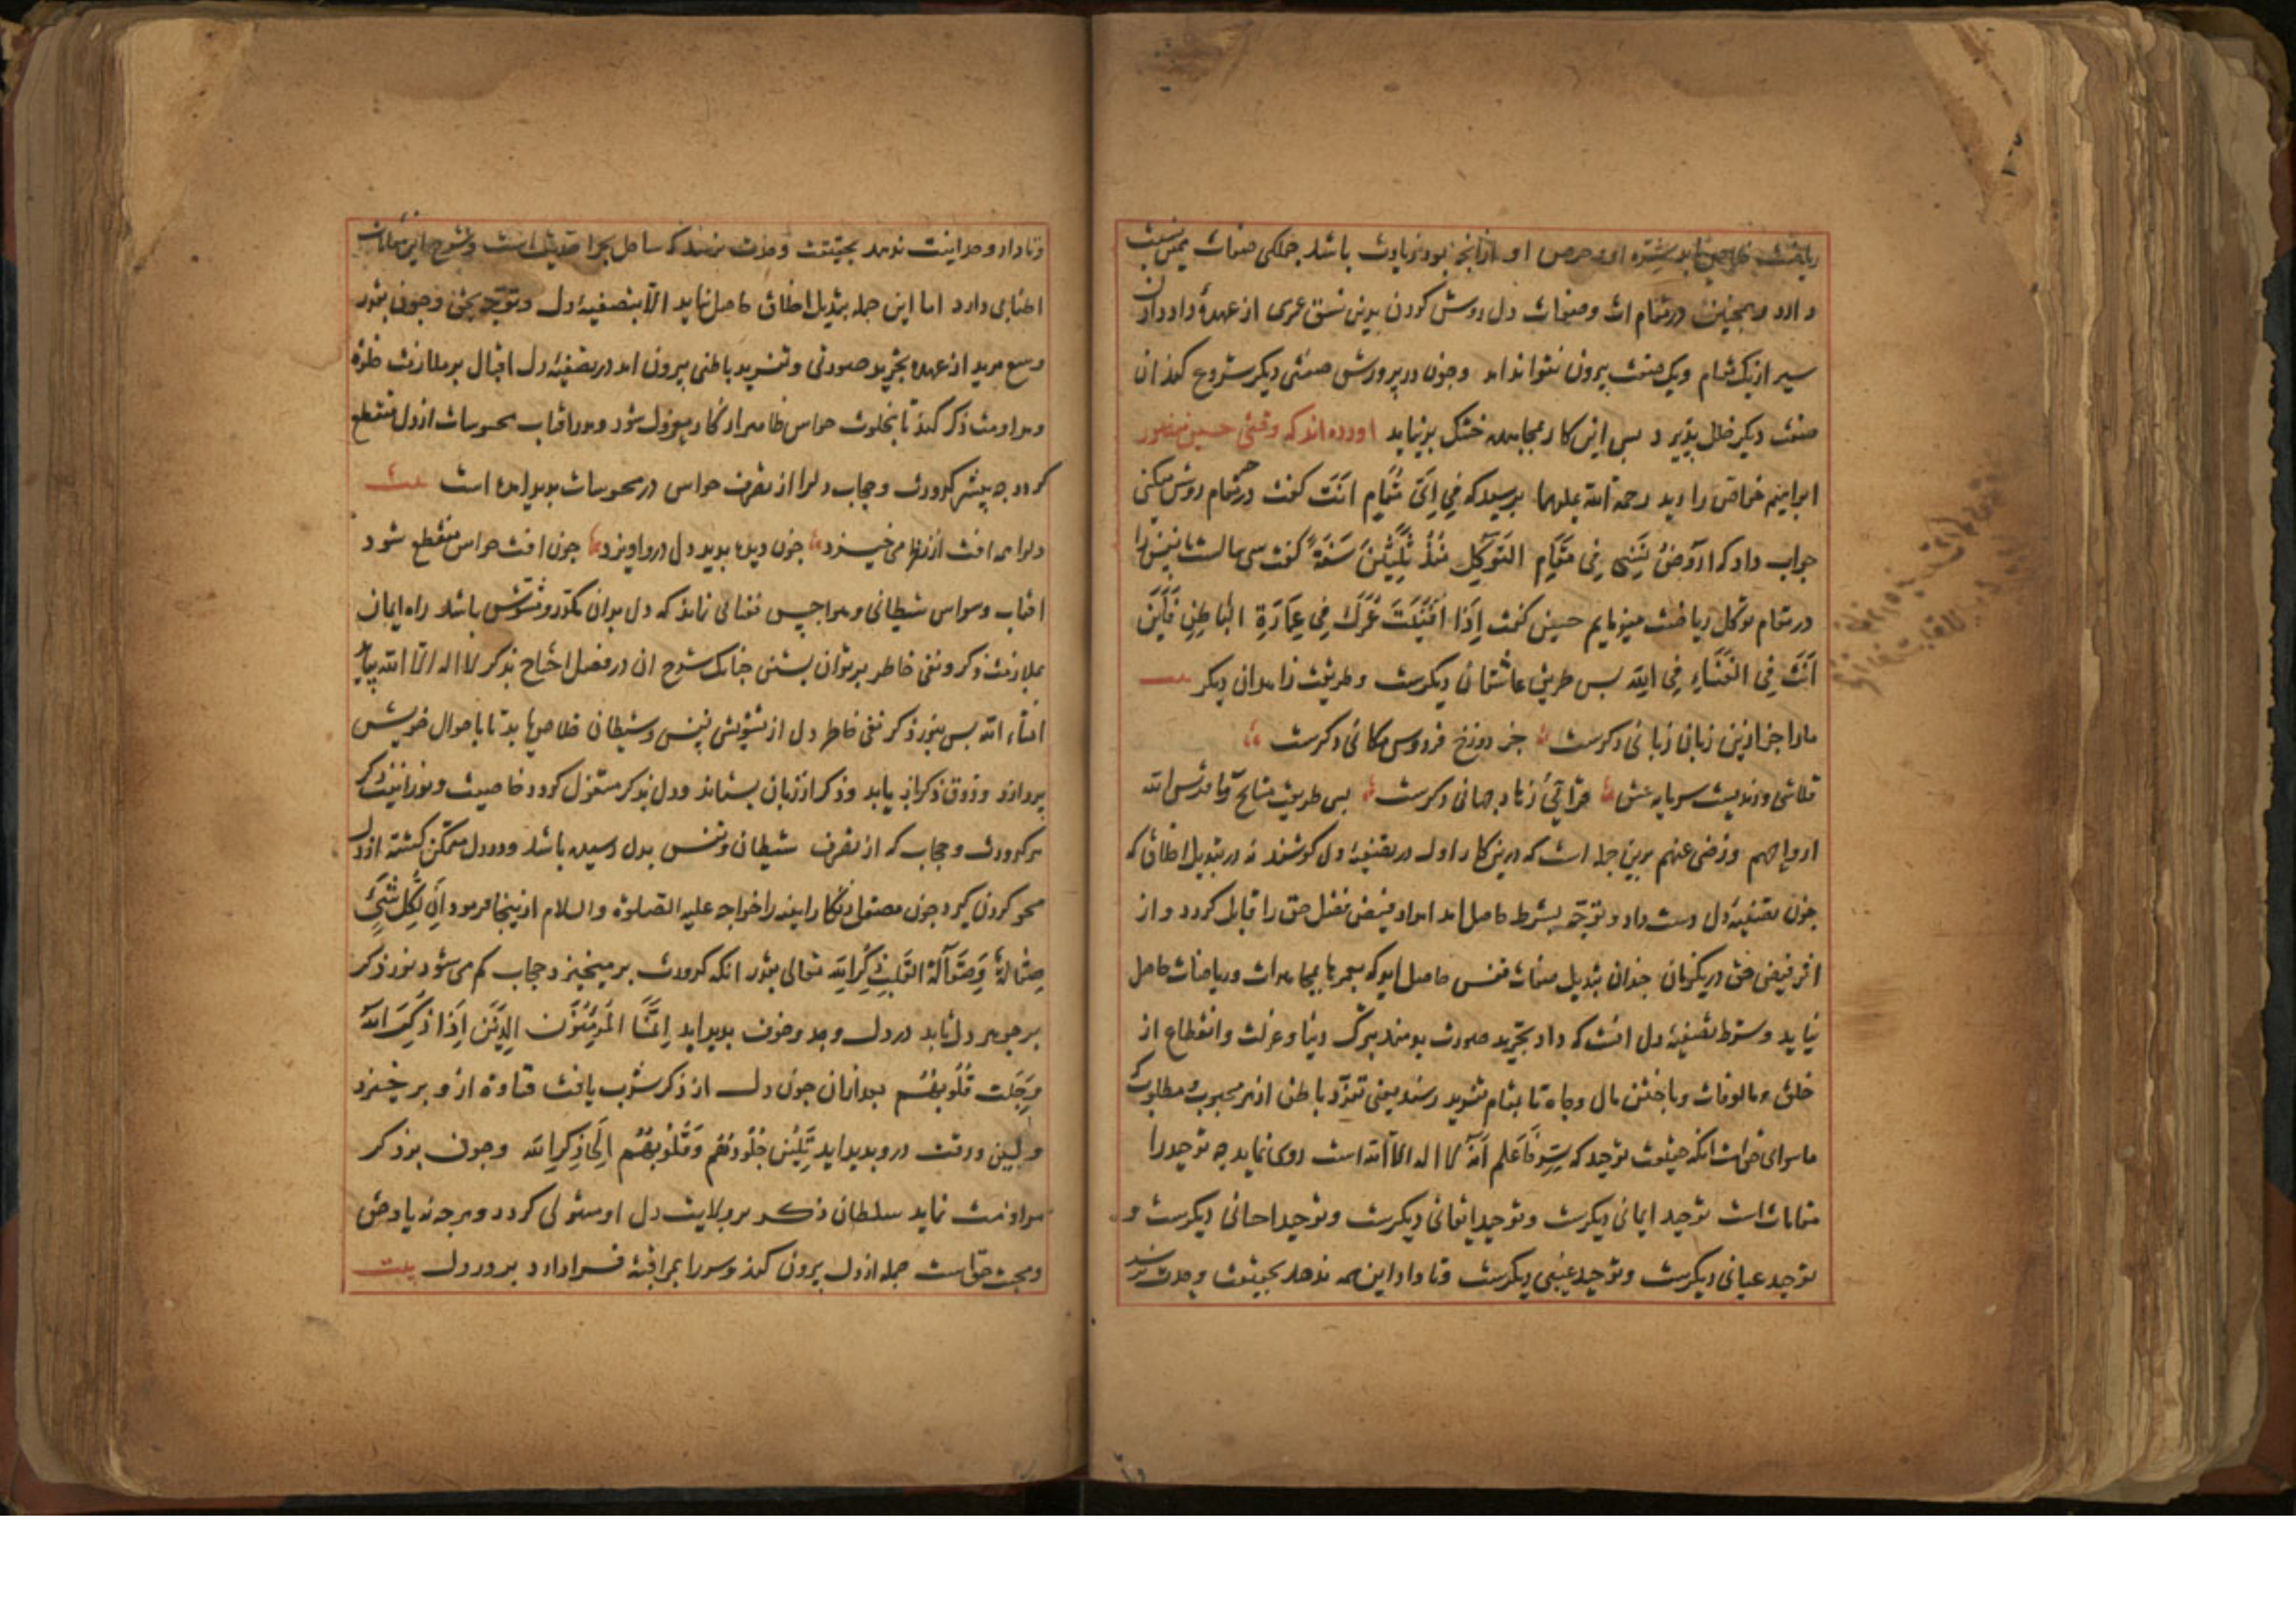 ریاضت خلاص یابد شره او و حرص او از آنچه بود زیادت باشد جملگی صفات همین نسبت
دارد و همچنین در مقامات و صفات دل روش کردن بدین نسق عمری از عهدهٔ داد دادن
سیر از یک مقام و یک صفت بیرون نتواند امد وچون در پرورش صفتی دیگر شروع کند ان
صفت دیگر خلل پذیرد بس این کار بمجاهده خشک برنیاید اورده‌اند که وقتی حسین منصور
ابراهیم خواص را دید رحمة الله علیهما برسید که فِي اَيّ مَقَامٍ اَنتَ گفت در چه مقام روش میکنی
جواب داد که اُرَوِّضُ نَفسِي فِي مَقَامِ التَوَکُّلِ مُنذُ ثَلٰثِینَ سَنَةً گفت سی سالست تا نفس را
در مقام توکل ریاضت میفرمایم حسین گفت اِذَا اَفنَیتَ عُمرَكَ فِي عِمَارَةِ البَاطِنِ فَاَینَ
اَنتَ فِي الفَنَاءِ فِي الله بس طریق عاشقان دیگرست و طریقت زاهدان دیگر بیت
ما را جز ازین زبان زبانی دگرست جز دوزخ و فردوس مکانی دگرست
قلاشی و رندیست سرمایه عشق قرایی و زهاد جهانی دگرست بس طریقت مشایخ ما قدس الله
ارواحهم و رضی عنهم برین جمله است که درین کار اول در تصفیهٔ دل کوشند نه در تبدیل اخلاق که
چون تصفیهٔ دل دست داد و توجه بشرط حاصل امد امداد فیض فضل حق را قابل گردد و از
اثر فیض حق در یکزمان چندان تبدیل صفات نفس حاصل اید که بعمرها بمجاهدات و ریاضات حاصل
نیاید و شرط تصفیهٔ دل انست که داد تجرید صورت بدهد بترک دنیا و عزلت و انقطاع از
خلق و مالوفات و باختن مال و جاه تا بمقام تفرید رسد یعنی تفرد باطن از هر محبوب و مطلوب که
ماسوای حق است انگه حقیقت توحید که سِرّ فَاعلَم اَنَّهُ لا اله الا الله است روی نماید چه توحید را
مقامات است توحید ایمانی دیگرست و توحید ایقانی دیگرست و توحید احسانی دیگرست و
توحید عیانی دیگرست و توحید عینی دیگرست و تا داد این همه ندهد بحقیقت وحدت نرسد
و تا داد وحدانیت ندهد بحقیقت وحدت نرسد که ساحل بحر احدیت است و شرح این مقامات
اطنابی دارد اما این جمله بتبدیل اخلاق حاصل نیاید الا بتصفیهٔ دل و توجه بحق و چون بقدر
وسع مرید از عهدهٔ تجرید صورتی و تفرید باطنی بیرون امد در تصفیهٔ دل اقبال بر ملازمت خلوة
و مداومت ذکر کند تا بخلوت حواس ظاهر از کار معزول شود و مدد افات محسوسات از دل منقطع
گردد چه بیشتر کدورت و حجاب دل را از تصرف حواس در محسوسات پدید امده است بیت
دل را همه افت از نظر می‌خیزد چون دیده بدید دل درو اویزد چون افت حواس منقطع شود
افات وسواس شیطانی و هواجس نفسانی ماند که دل بدان مکدر و مشوش باشد راه ایمان
بملازمت ذکر و نفی خاطر برتوان بستن چنانک شرح ان در فصل احتیاج بذکر لا اله الا الله بیاید
انشاء الله بس بنور ذکر نفی خاطر دل از تشویش نفس و شیطان خلاص یابد تا باحوال خویش
پردازد و ذوق ذکر باز یابد و ذکر از زبان بستاند و دل بذکر مشغول گردد خاصیت و نورانیت ذکر
هر کدورت و حجاب که از تصرف شیطان و نفس بدل رسیده باشد و در دل متمکن گشته از دل
محو کردن گیرد چون مصقل زنگار اینه را خواجه علیه الصلوة والسلام ازینجا فرمود اِنَّ لِکُلِّ شَيءٍ
صِقَالَةً وَصِقَالَةُ القَلبِ ذِکرُ الله تعالی بقدر انکه کدورت بر میخیزد و حجاب کم می‌شود نور ذکر
بر جوهر دل تابد در دل وجد و خوف پدید اید اِنَّمَا المُؤمِنُونَ الَّذِینَ اِذَا ذُکِرَ اللهُ
وَجِلَت قُلُوبُهُم بعد ازان چون دل از ذکر شرب یافت قساوة ازو برخیزد
و لین و رقت درو پدید اید ثُمَّ تَلِینُ جُلُودُهُم وَقُلُوبُهُم اِلَی ذِکرِ الله و چون بر ذکر
مداومت نماید سلطان ذکر بر ولایت دل او مستولی گردد و هر چه نه یاد حق
و محبت حق است جمله از دل بیرون کند و سر را بمراقبهٔ فرا دارد بر در دل بیت